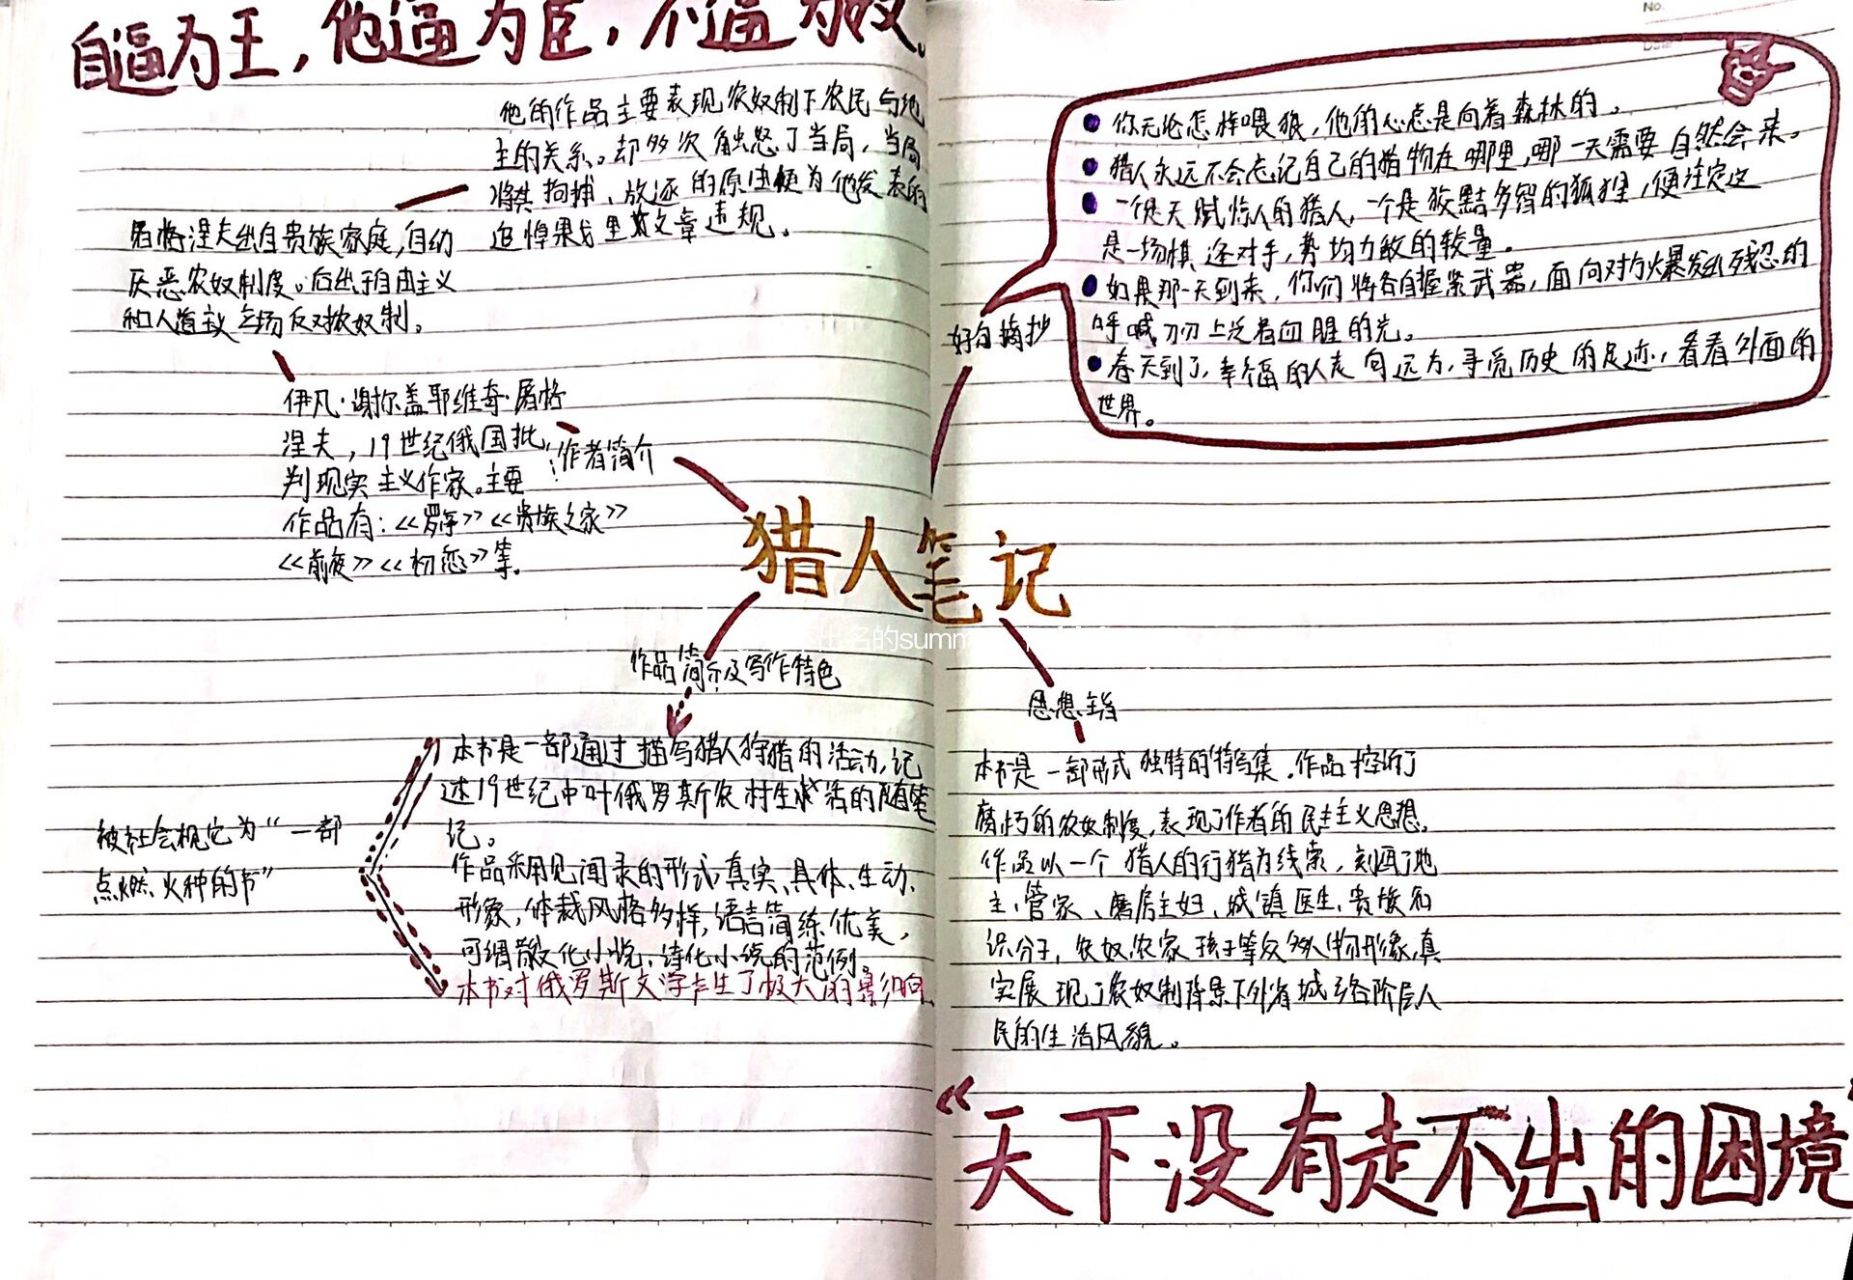 自逼为王，他逼为臣，不逼为奴。
他的作品主要表现农奴制下农民与地
主的关系。却多次触怒了当局，当局
将其拘捕、放逐的原由便为他发表的
追悼果戈里文章违规。
屠格涅夫出自贵族家庭，自幼
厌恶农奴制度。后出于自由主义
和人道主义立场反对农奴制。
伊凡·谢尔盖耶维奇·屠格
涅夫，19世纪俄国批
判现实主义作家。主要
作品有：《罗亭》《贵族之家》
《前夜》《初恋》等。
作者简介
猎人笔记
作品简介及写作特色
本书是一部通过描写猎人狩猎的活动，记
述19世纪中叶俄罗斯农村生活的随笔
记。
作品采用见闻录的形式真实、具体、生动、
形象，体裁风格多样，语言简练优美，
可谓散文化小说、诗化小说的范例。
本书对俄罗斯文学产生了极大的影响
被社会视它为“一部
点燃火种的书”
No.
好句摘抄
你无论怎样喂狼，他的心总是向着森林的。
猎人永远不会忘记自己的猎物在哪里，哪一天需要自然会来。
一个是天赋惊人的猎人，一个是狡黠多智的狐狸，便注定这
是一场棋逢对手，势均力敌的较量。
如果那一天到来，你们将各自握紧武器，面向对方爆发出残忍的
呼喊，刀刃上泛着血腥的光。
春天到了，幸福的人走向远方，寻觅历史的足迹，看看外面的
世界。
思想主旨
本书是一部形式独特的特写集。作品控诉了
腐朽的农奴制度，表现了作者的民主主义思想。
作品以一个猎人的行猎为线索，刻画了地
主、管家、磨房主妇、城镇医生、贵族知
识分子、农奴、农家孩子等众多人物形象，真
实展现了农奴制背景下外省城乡各阶层人
民的生活风貌。
“天下没有走不出的困境”
出名的summ